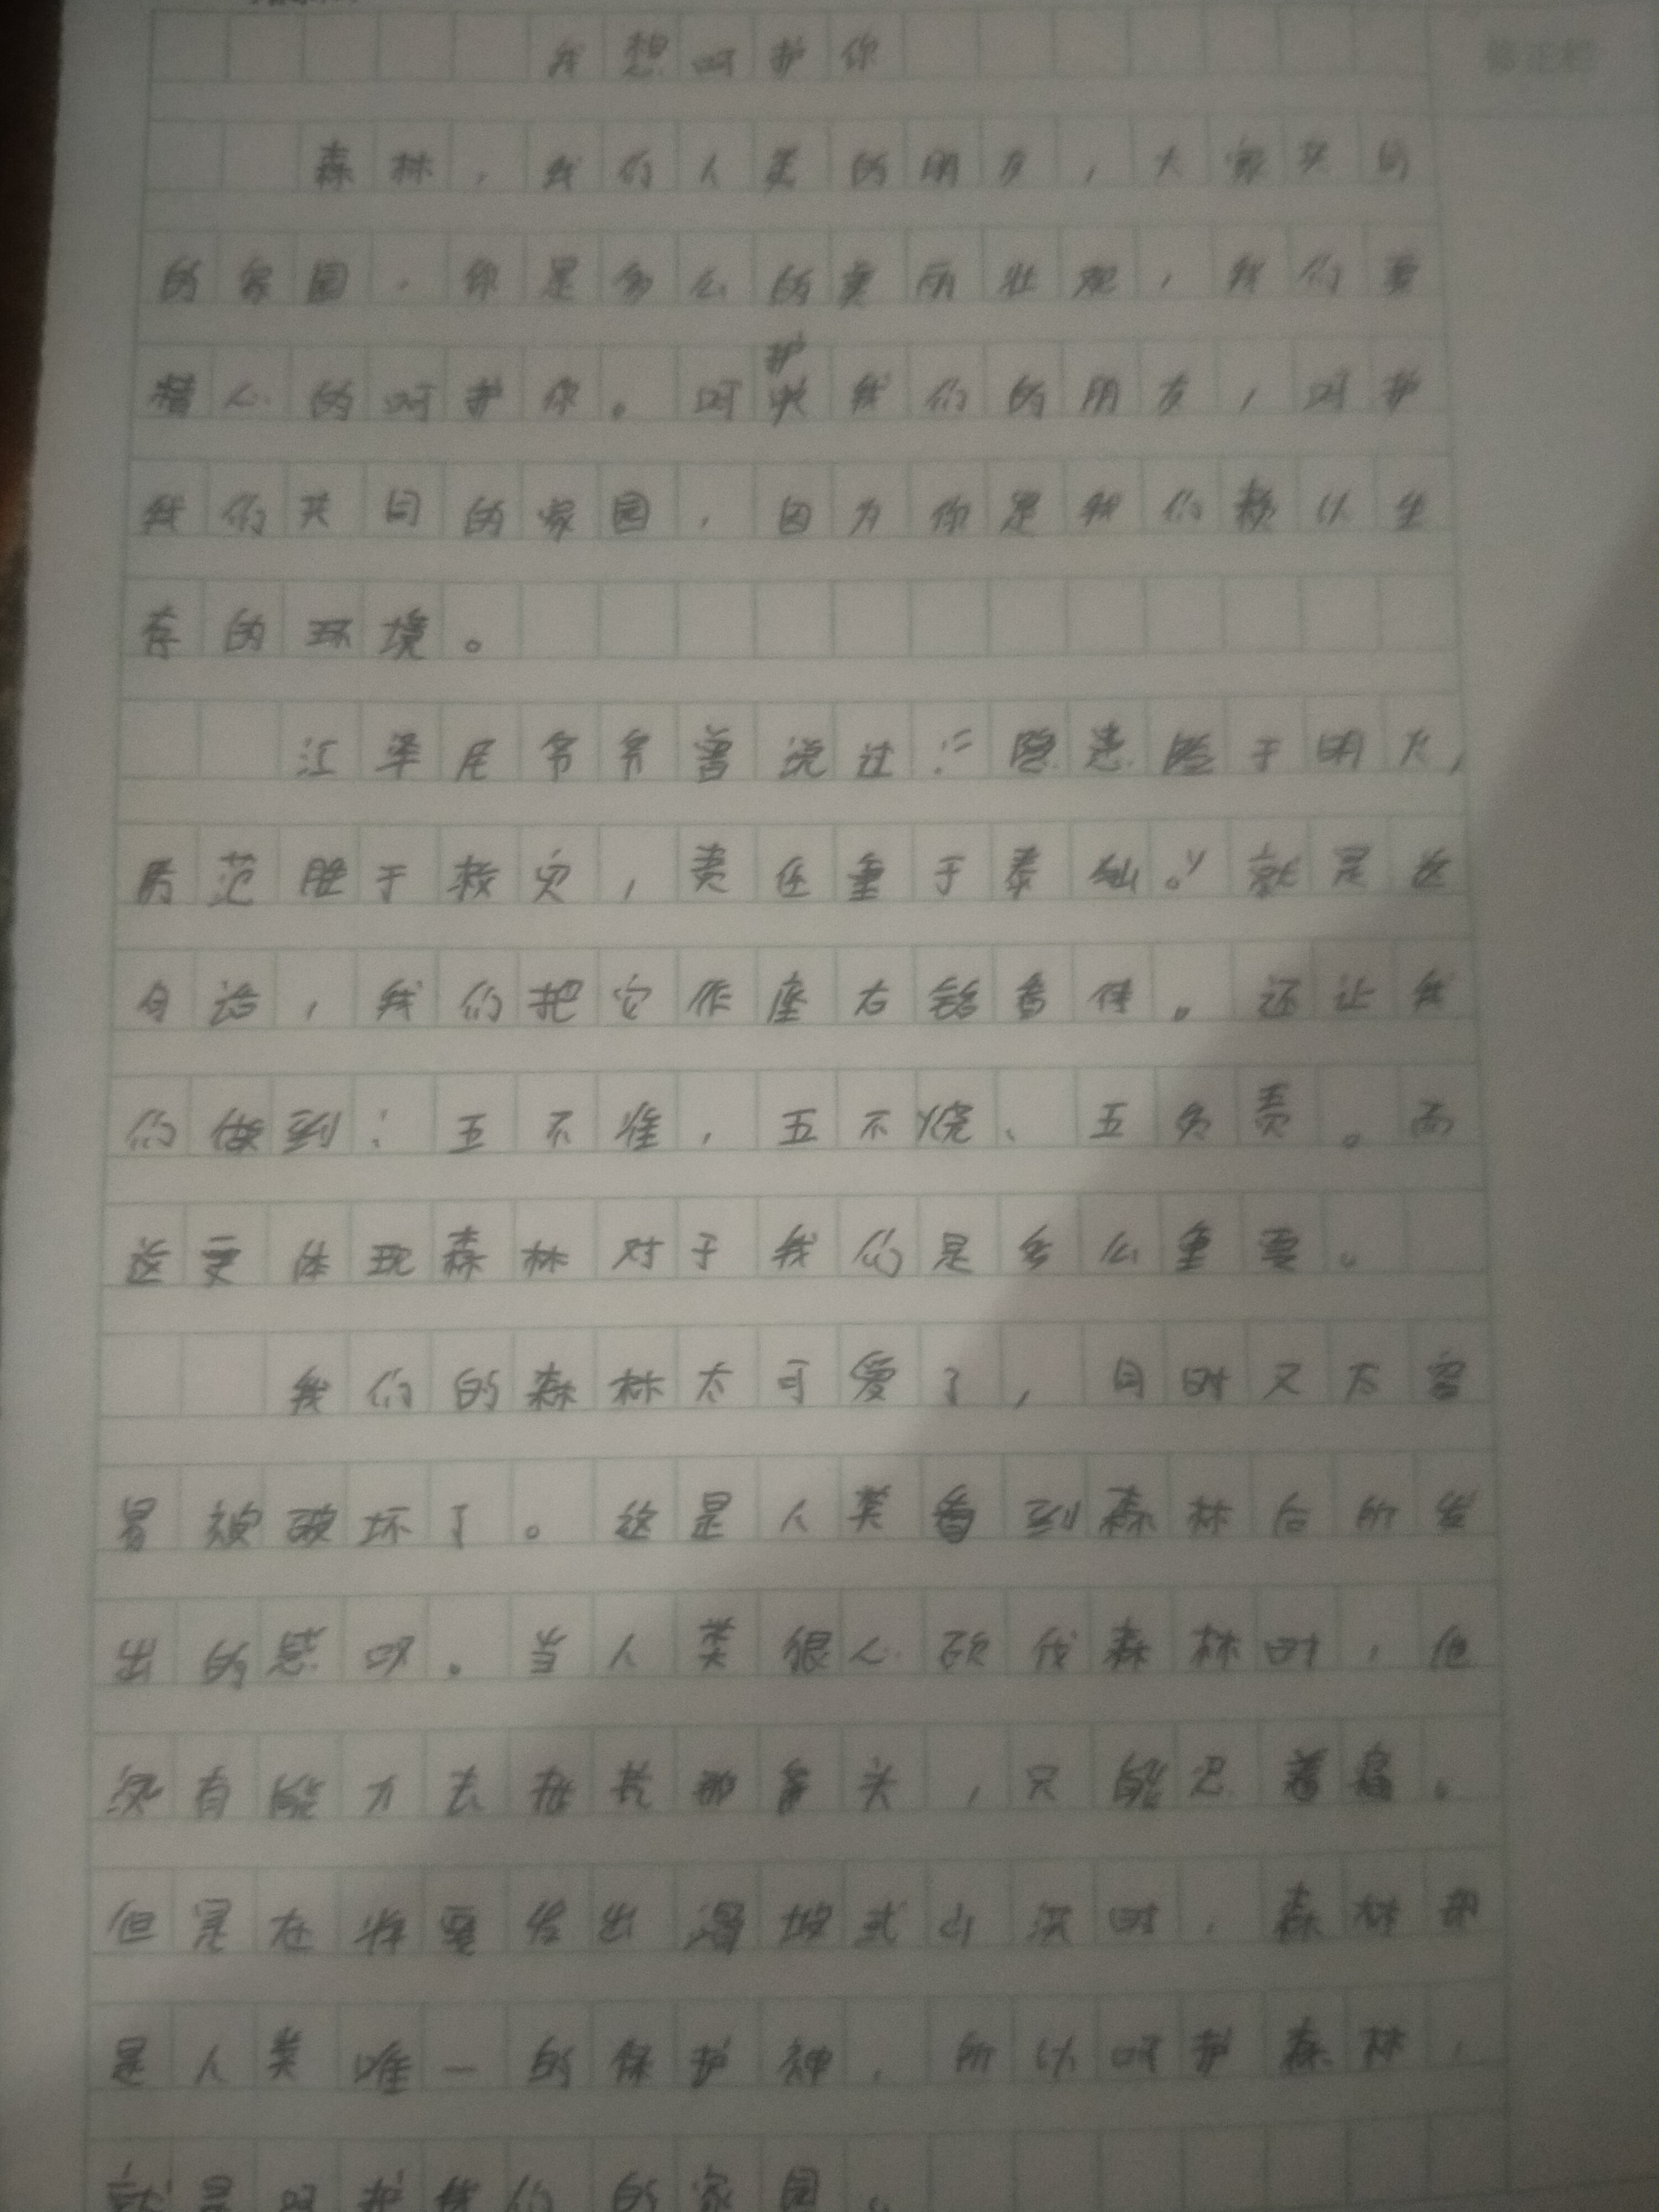 我想呵护你
修正栏
森林，我们人类的朋友，大家共同
的家园，你是多么的美丽壮观，我们要
精心的呵护你。呵护我们的朋友，呵护
我们共同的家园，因为你是我们赖以生
存的环境。
江泽民爷爷曾说过：“隐患险于明火，
防范胜于救灾，责任重于泰山。”就是这
句话，我们把它作座右铭看待。还让我
们做到：五不准，五不烧、五负责。而
这更体现森林对于我们是多么重要。
我们的森林太可爱了，同时又太容
易被破坏了。这是人类看到森林后所发
出的感叹。当人类狠心砍伐森林时，他
没有能力去抵抗那斧头，只能忍着痛。
但是在将要发出滑坡或山洪时，森林却
是人类唯一的保护神，所以呵护森林，
就是呵护我们的家园。